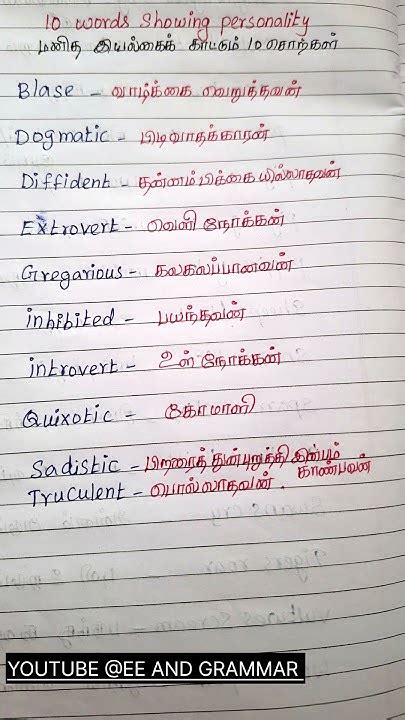 10 words showing personality
மனித இயல்கைக் காட்டும் 10 சொற்கள்
Blase - வாழ்க்கை வெறுத்தவன்
Dogmatic - பிடிவாதக்காரன்
Diffident - தன்னம்பிக்கையில்லாதவன்
Extrovert - வெளி நோக்கன்
Gregarious - கலகலப்பானவன்
inhibited - பயந்தவன்
introvert - உள் நோக்கன்
Quixotic - கோமாளி
Sadistic - பிறரைத் துன்புறுத்தி இன்பம் காண்பவன்
Truculent - பொல்லாதவன்.
YOUTUBE @EE AND GRAMMAR